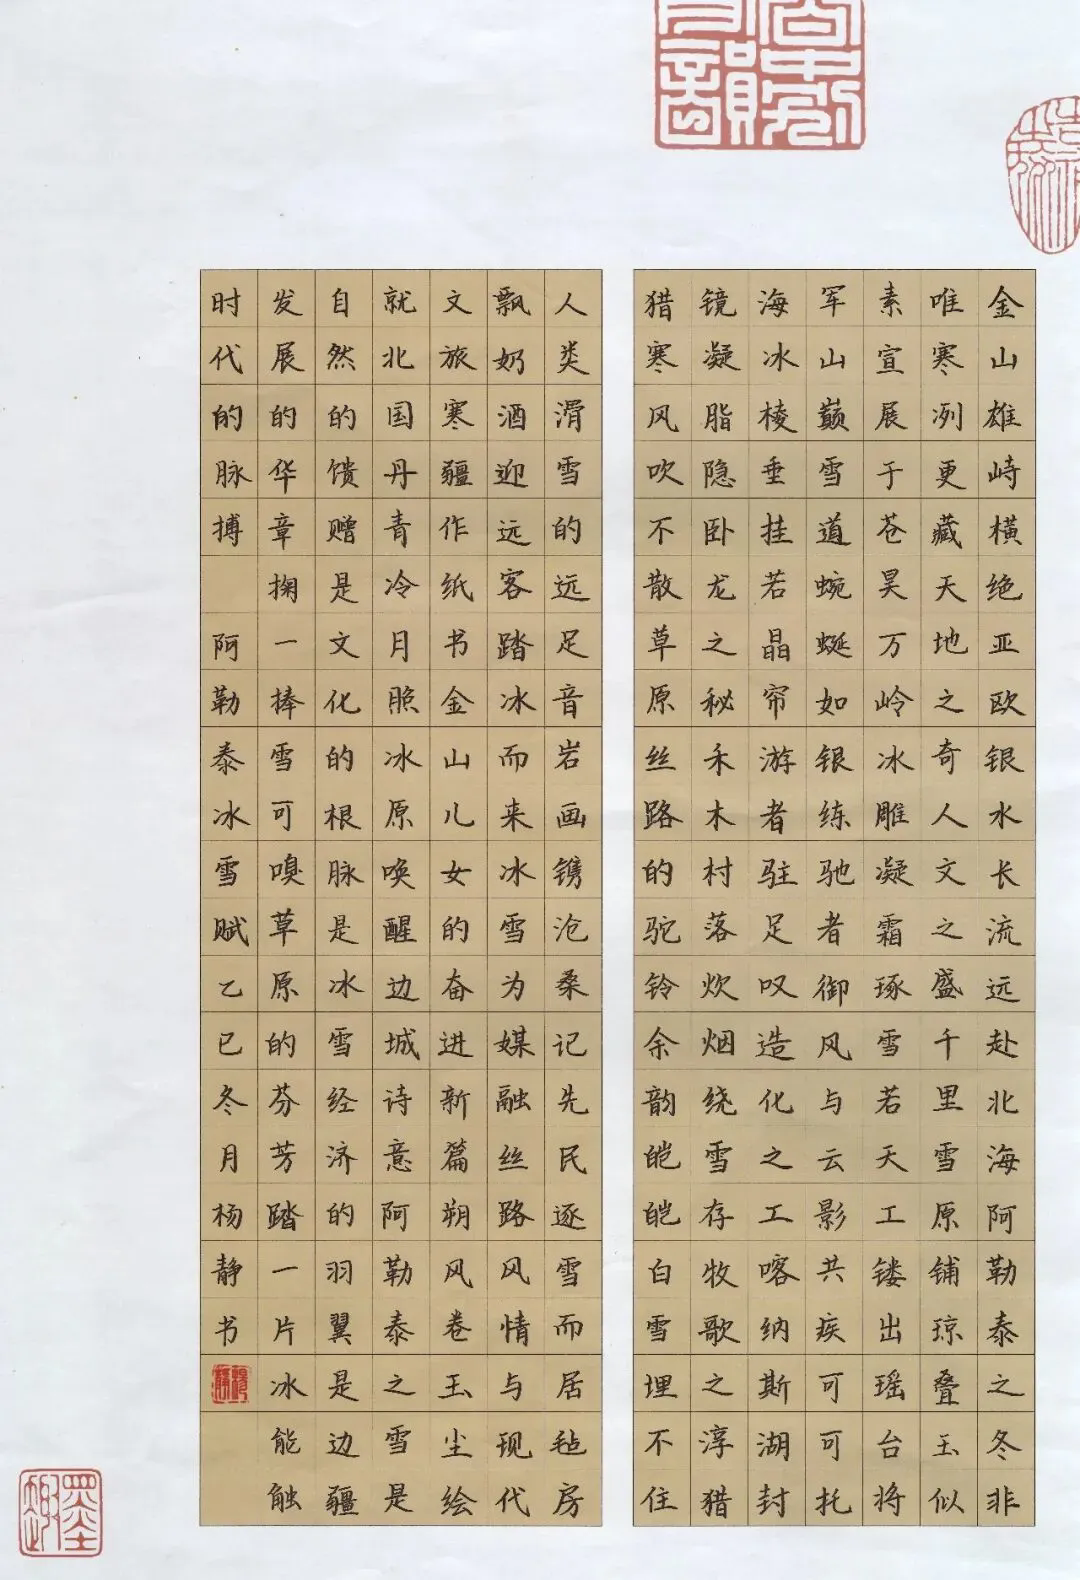 金山雄峙横绝亚欧银水长流远赴北海阿勒泰之冬非
唯寒冽更藏天地之奇人文之盛千里雪原铺琼叠玉似
素宣展于苍昊万岭冰雕凝霜琢雪若天工镂出瑶台将
军山巅雪道蜿蜒如银练驰者御风与云影共疾可可托
海冰棱垂挂若晶帘游者驻足叹造化之工喀纳斯湖封
镜凝脂隐卧龙之秘禾木村落炊烟绕雪存牧歌之淳猎
猎寒风吹不散草原丝路的驼铃余韵皑皑白雪埋不住
人类滑雪的远足音岩画镌沧桑记先民逐雪而居毡房
飘奶酒迎远客踏冰而来冰雪为媒融丝路风情与现代
文旅寒疆作纸书金山儿女的奋进新篇朔风卷玉尘绘
就北国丹青冷月照冰原唤醒边城诗意阿勒泰之雪是
自然的馈赠是文化的根脉是冰雪经济的羽翼是边疆
发展的华章掬一捧雪可嗅草原的芬芳踏一片冰能触
时代的脉搏 阿勒泰冰雪赋乙巳冬月杨静书